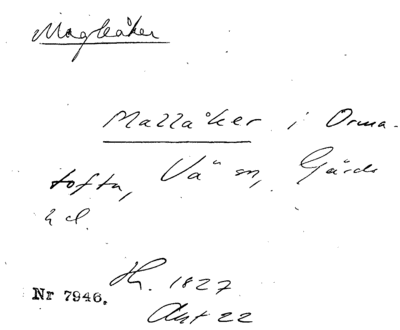 Magleåker
Mallåker i Orma-
tofta, Vä sn, Gärds
hd.
Nr 7946.
1827
Akt 22